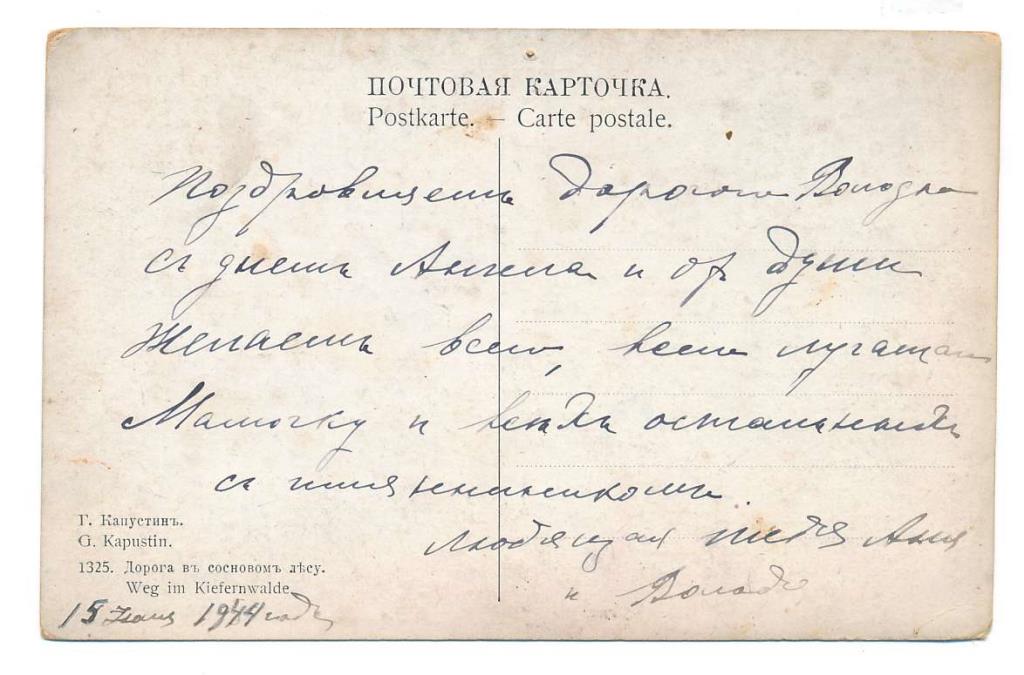 ПОЧТОВАЯ КАРТОЧКА.
Postkarte. — Carte postale.
Поздровляемъ дорогого Володю
съ днемъ Ангела и от души
Желаемъ всего, всего лучшаго
Мамочку и всехъ остальныхъ
съ имянинникомъ.
Любящая тетя Аня
и Володя
Г. Капустинъ.
G. Kapustin.
1325. Дорога въ сосновомъ лѣсу.
Weg im Kiefernwalde.
15 1944 годъ